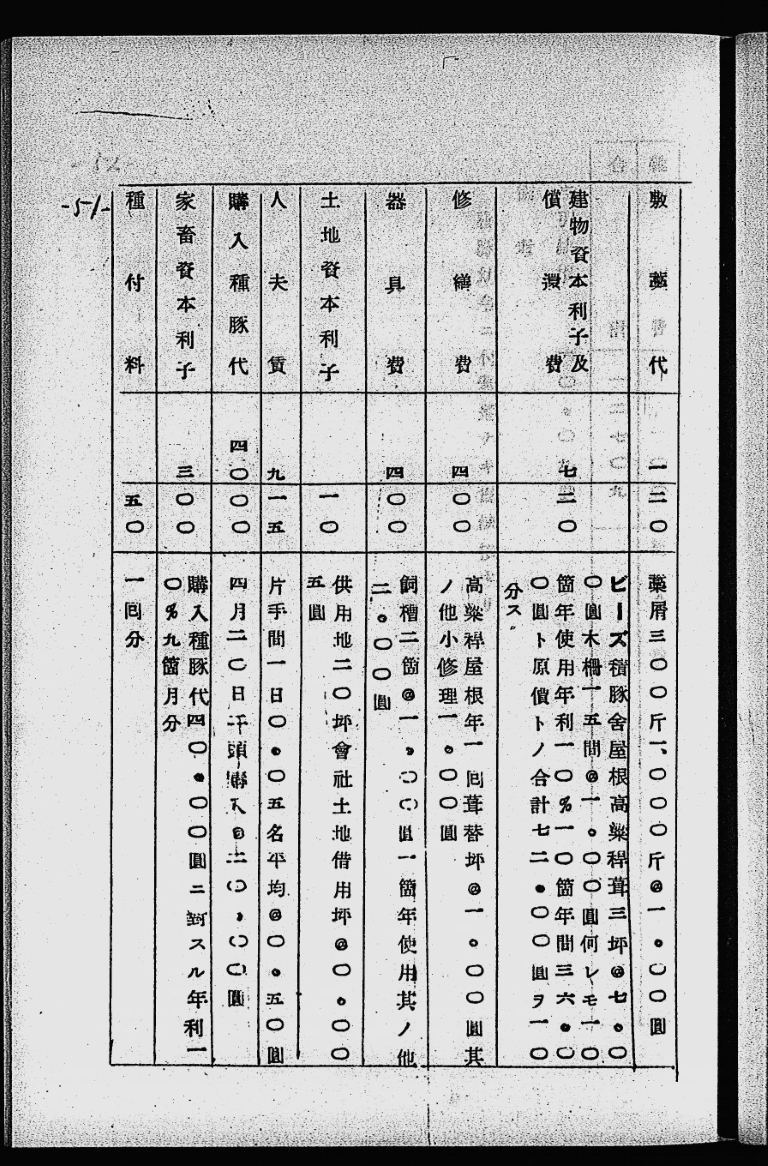 敷藁代 一二〇 藁屑三〇〇斤一、〇〇〇斤@一。〇〇圓
建物資本利子及償還費 七二〇 ビーズ積豚舍屋根高粱稈葺三坪@七。〇
〇圓木柵一五間@一。〇〇圓何レモ一〇
箇年使用年利一〇%一〇箇年間三六。〇
〇圓ト原價トノ合計七二。〇〇圓ヲ一〇
分ス
修繕費 四〇〇 高粱稈屋根年一回葺替坪@一。〇〇圓其
ノ他小修理一。〇〇圓
器具費 四〇〇 飼槽二箇@一。〇〇圓一箇年使用其ノ他
二。〇〇圓
土地資本利子 一〇 供用地二〇坪會社土地借用坪@〇。〇〇
五圓
人夫賃 九一五 片手間一日〇。〇五名平均@〇。五〇圓
購入種豚代 四〇〇〇 四月二〇日二頭購入@二〇。〇〇圓
家畜資本利子 三〇〇 購入種豚代四〇。〇〇圓ニ對スル年利一
〇%九箇月分
種付料 五〇 一回分
-51-